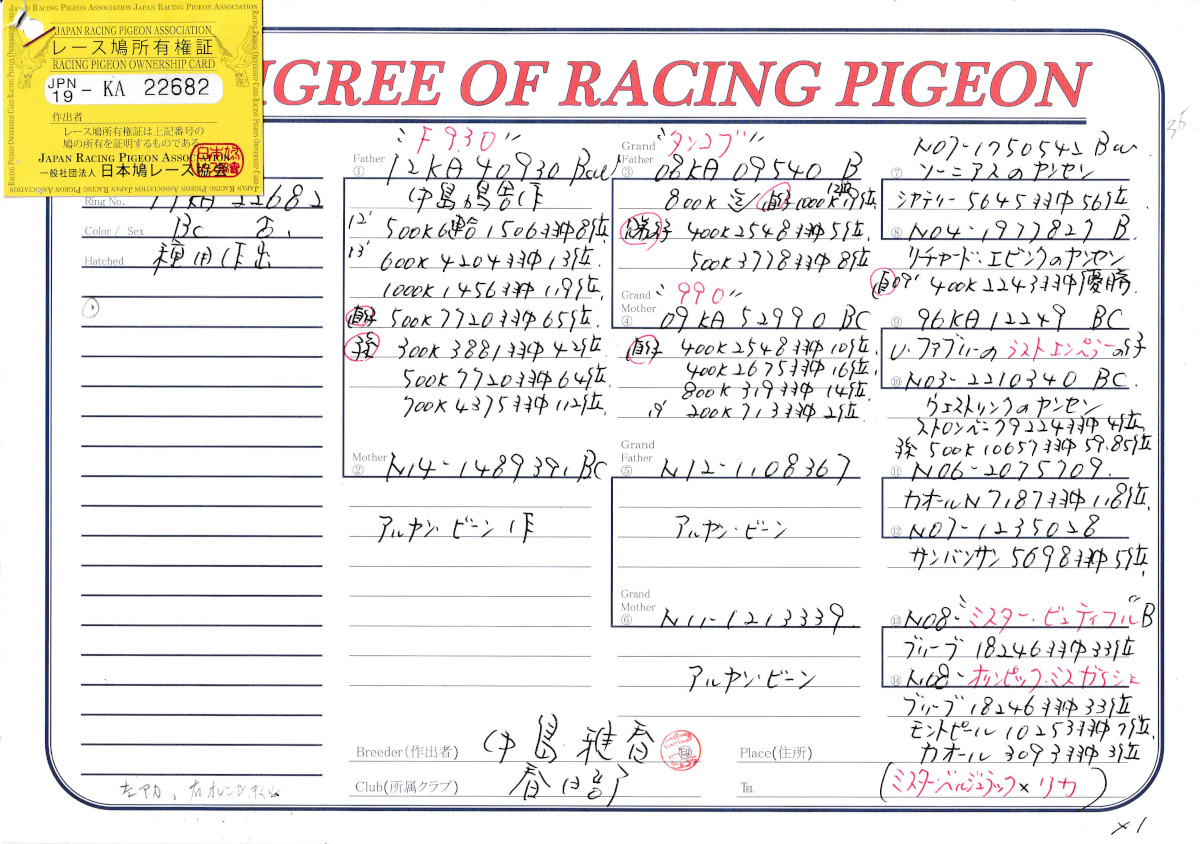 JAPAN RACING PIGEON ASSOCIATION
レース鳩所有権証
RACING PIGEON OWNERSHIP CARD
JPN 19 - KA 22682
作出者
レース鳩所有権証は上記番号の
鳩の所有を証明するものである
JAPAN RACING PIGEON ASSOCIATION
一般社団法人 日本鳩レース協会
IGREE OF RACING PIGEON
Ring No. 19KA 22682
Color / Sex Bc
Hatched 種用作出
"F930"
Father ① 12KA 40930 BCW
中島鳩舎作
12' 500K 6連合 1506羽中8位.
13' 600K 4204羽中13位.
1000K 1456羽中119位.
直仔 500K 7720羽中65位.
孫 300K 3881羽中42位.
500K 7720羽中64位
700K 4375羽中112位.
Mother ② N14-1489391 BC
アルヤン・ビーン作
"タンコブ"
Grand Father ③ 08KA 09540 B
800K 直仔 1000K 19位
400K 2548羽中5位.
500K 3778羽中8位
"990"
Grand Mother ④ 09KA 52990 BC
直仔 400K 2548羽中10位.
400K 2675羽中16位.
800K 319羽中14位
200K 713羽中2位
Grand Father ⑤ N12-1108367
アルヤン・ビーン
Grand Mother ⑥ N11-1213339.
アルヤン・ビーン
⑦ N07-1750542 BW
ソーニアスのヤンセン
シャティー 5645羽中56位
⑧ N04-1977827 B.
リチャード・エビンクのヤンセン
直 09' 400K 2243羽中優勝.
⑨ 96KA12249 BC
U・ファブリーのラストエンペラーの仔
⑩ N03-2210340 BC.
ヴェストリンクのヤンセン
ストロンベーク 9224羽中4位.
孫 500K 10657羽中59.85位
⑪ N06-2075709.
カオールN 7187羽中118位.
⑫ N07-1235028
サンバンサン 5698羽中5位.
⑬ N08-"ミスター・ビューティフル" B
ブリーブ 18246羽中33位
⑭ N08-オリンピック・ミスガラシュ
ブリーブ 18246羽中33位
モントピール 10253羽中7位.
カオール 3093羽中3位
(ミスター・ベルジュラック×リカ)
Breeder(作出者) 中島 雅香
Place(住所)
Club(所属クラブ) 春日部
TEL
x1